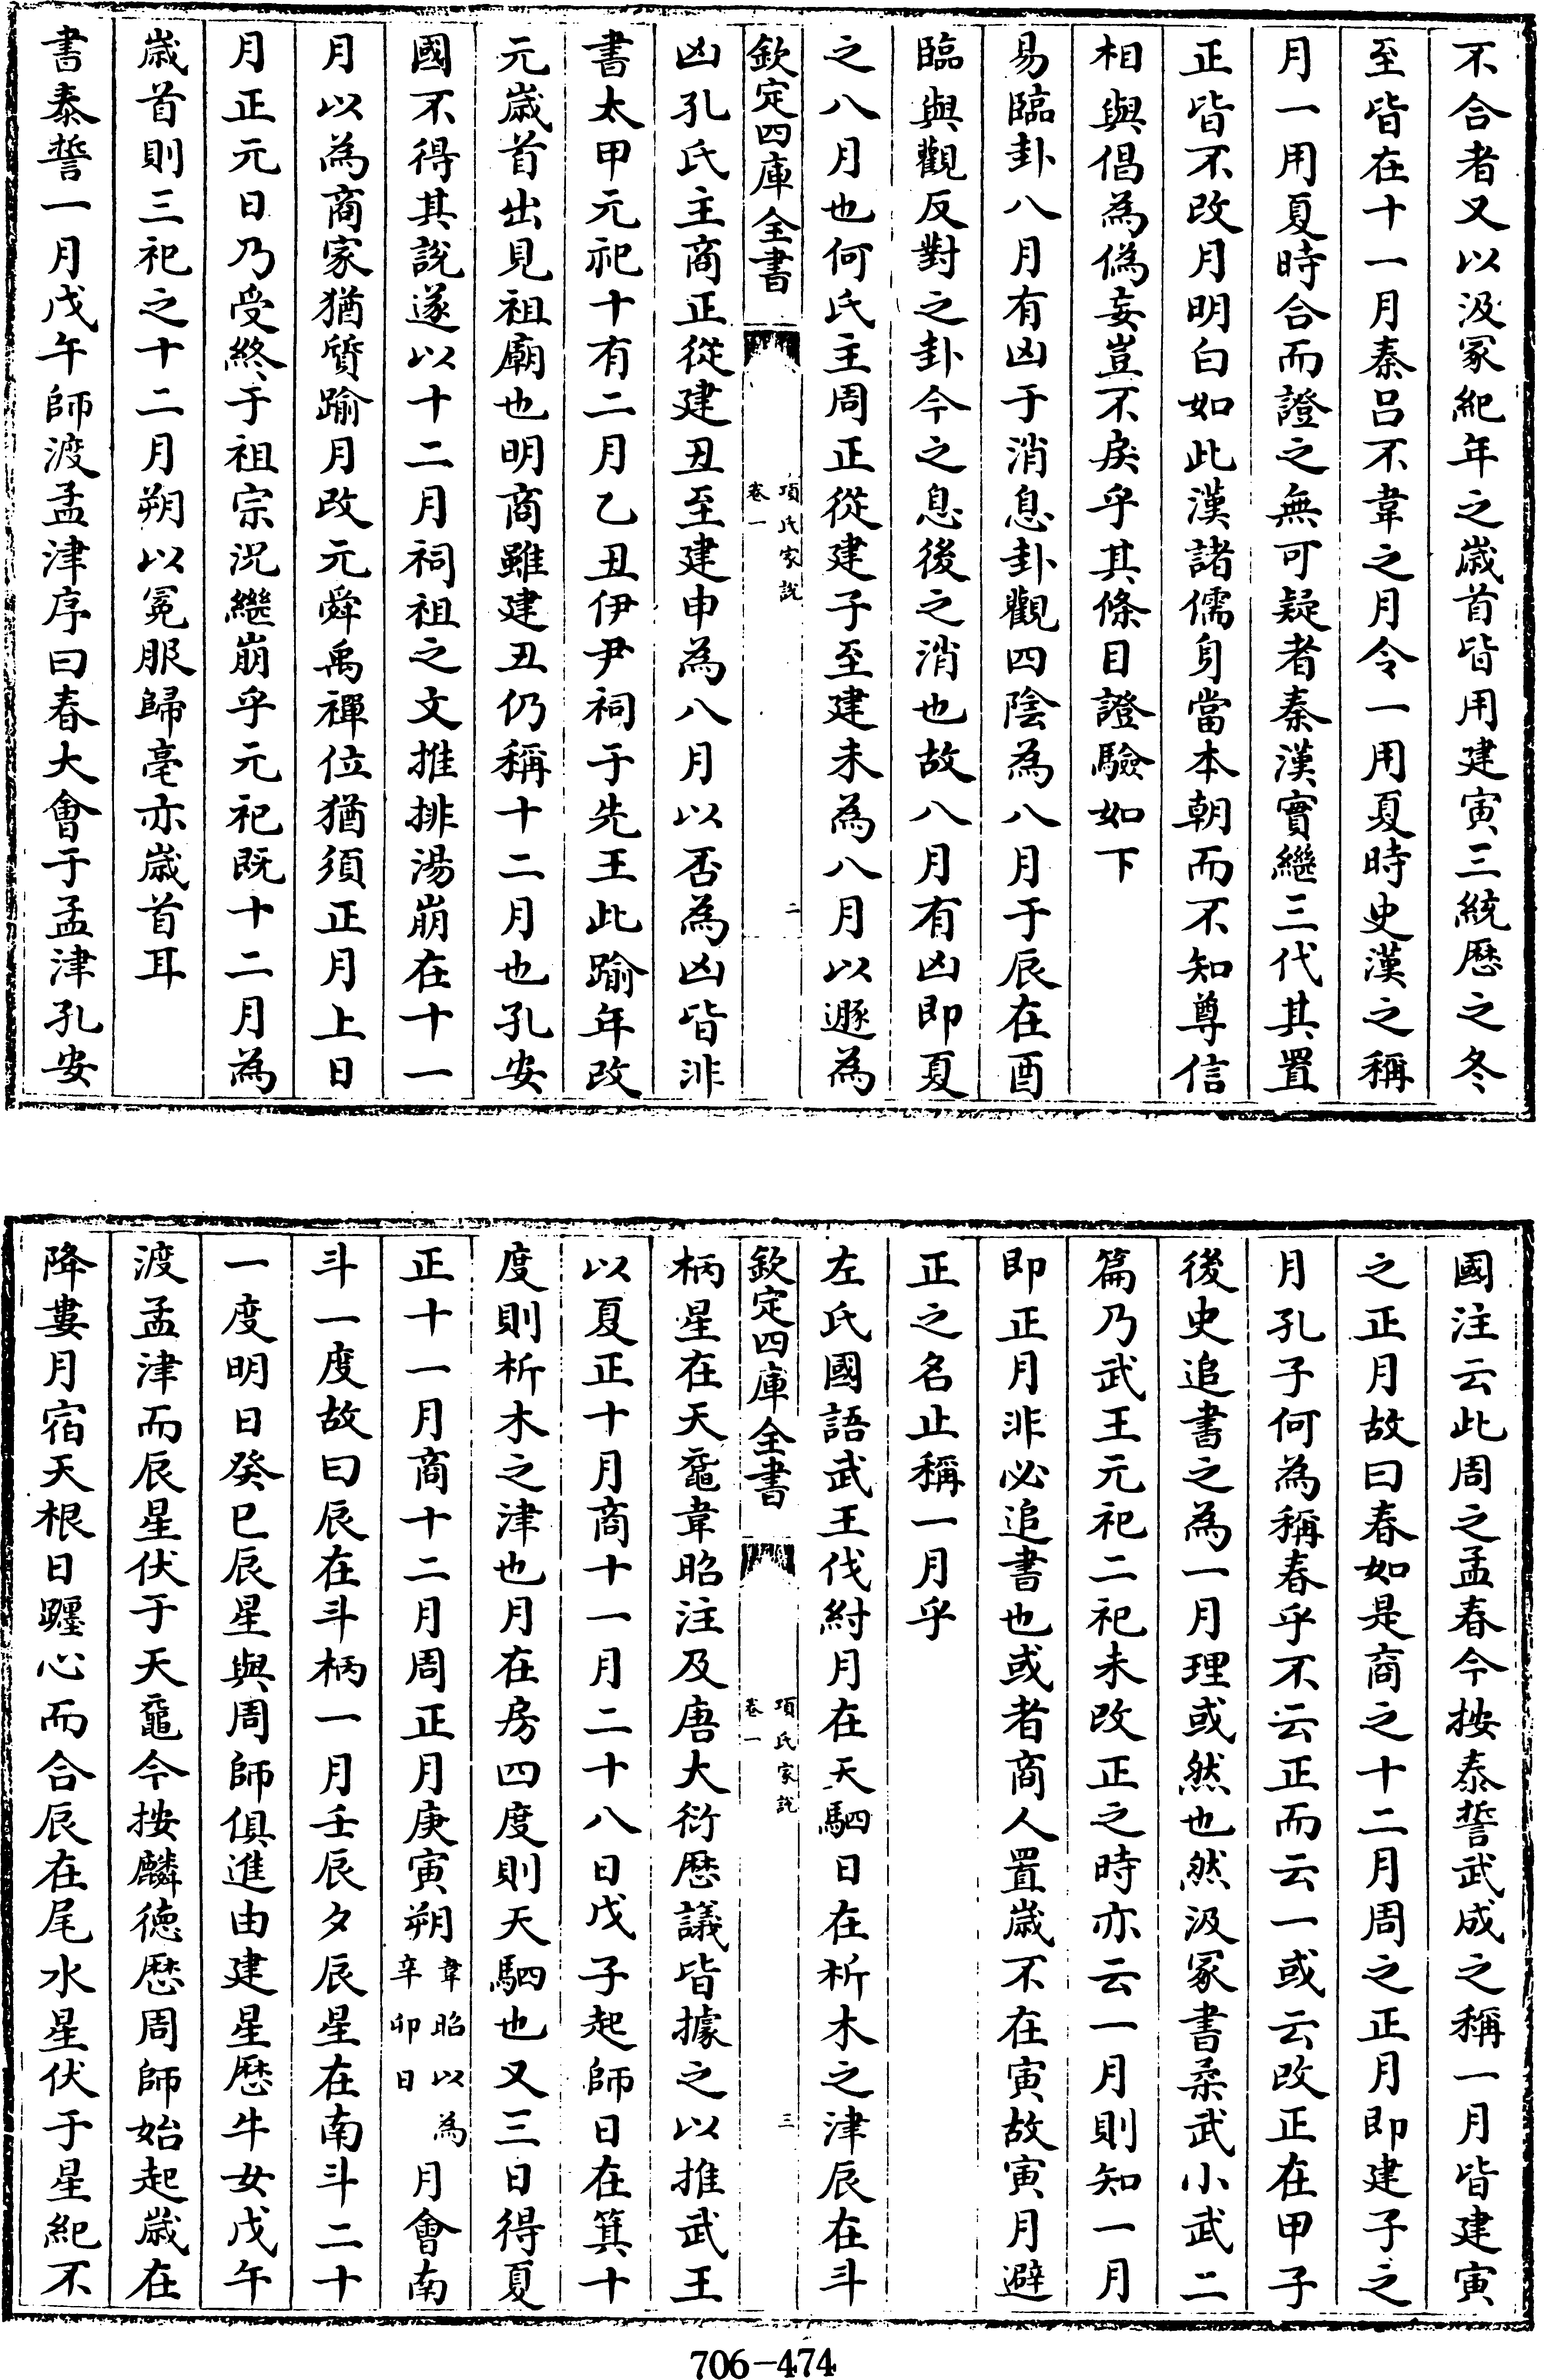 不合者又以汲冢紀年之歲首皆用建寅三統厯之冬
至皆在十一月秦呂不韋之月令一用夏時史漢之稱
月一用夏時合而證之無可疑者秦漢實繼三代其置
正皆不改月明白如此漢諸儒身當本朝而不知尊信
相與倡為偽妄豈不戾乎其條目證驗如下
易臨卦八月有凶于消息卦觀四陰為八月于辰在酉
臨與觀反對之卦今之息後之消也故八月有凶即夏
之八月也何氏主周正從建子至建未為八月以遯為
欽定四庫全書
項氏家說
卷一
二
凶孔氏主商正從建丑至建申為八月以否為凶皆非
書太甲元祀十有二月乙丑伊尹祠于先王此踰年改
元歲首出見祖廟也明商雖建丑仍稱十二月也孔安
國不得其說遂以十二月祠祖之文推排湯崩在十一
月以為商家猶質踰月改元舜禹禪位猶須正月上日
月正元日乃受終于祖宗況繼崩乎元祀既十二月為
歲首則三祀之十二月朔以冕服歸亳亦歲首耳
書泰誓一月戊午師渡孟津序曰春大會于孟津孔安
國注云此周之孟春今按泰誓武成之稱一月皆建寅
之正月故曰春如是商之十二月周之正月即建子之
月孔子何為稱春乎不云正而云一或云改正在甲子
後史追書之為一月理或然也然汲冢書柔武小武二
篇乃武王元祀二祀未改正之時亦云一月則知一月
即正月非必追書也或者商人置歲不在寅故寅月避
正之名止稱一月乎
左氏國語武王伐紂月在天駟日在析木之津辰在斗
欽定四庫全書
項氏家說
卷一
三
柄星在天黿韋昭注及唐大衍厯議皆據之以推武王
以夏正十月商十一月二十八日戊子起師日在箕十
度則析木之津也月在房四度則天駟也又三日得夏
正十一月商十二月周正月庚寅朔韋昭以為辛卯日月會南
斗一度故曰辰在斗柄一月壬辰夕辰星在南斗二十
一度明日癸巳辰星與周師俱進由建星厯牛女戊午
渡孟津而辰星伏于天黿今按麟德厯周師始起歲在
降婁月宿天根日躔心而合辰在尾水星伏于星紀不
706-474